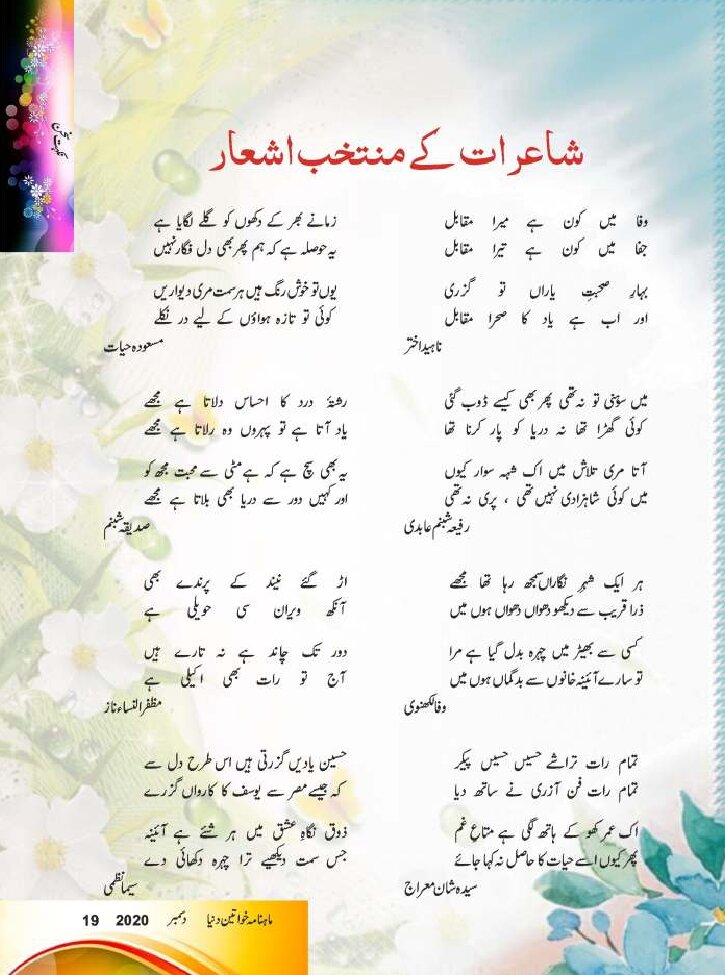 شاعرات کے منتخب اشعار
وفا میں کون ہے میرا مقابل
جفا میں کون ہے تیرا مقابل
بہارِ صحبتِ یاراں تو گزری
اور اب ہے یاد کا صحرا مقابل
ناہید اختر
میں سوہنی تو نہ تھی پھر بھی کیسے ڈوب گئی
کوئی گھڑا تھا نہ دریا کو پار کرنا تھا
آتا مری تلاش میں اک شہہ سوار کیوں
میں کوئی شاہزادی نہیں تھی ، پری نہ تھی
رفیعہ شبنم عابدی
ہر ایک شہرِ نگاراں سمجھ رہا تھا مجھے
ذرا قریب سے دیکھو دھواں دھواں ہوں میں
کسی سے بھیڑ میں چہرہ بدل گیا ہے مرا
تو سارے آئینہ خانوں سے بدگماں ہوں میں
وفا لکھنوی
تمام رات تراشے حسیں حسیں پیکر
تمام رات فن آزری نے ساتھ دیا
اک عمر کھو کے ہاتھ لگی ہے متاعِ غم
پھر کیوں اسے حیات کا حاصل نہ کہا جائے
سیدہ شان معراج
زمانے بھر کے دکھوں کو گلے لگایا ہے
یہ حوصلہ ہے کہ ہم پھر بھی دل فگار نہیں
یوں تو خوش رنگ ہیں ہر سمت مری دیواریں
کوئی تو تازہ ہواؤں کے لیے در نکلے
مسعودہ حیات
رشتۂ درد کا احساس دلاتا ہے مجھے
یاد آتا ہے تو پہروں وہ رلاتا ہے مجھے
یہ بھی سچ ہے کہ ہے مٹی سے محبت مجھ کو
اور کہیں دور سے دریا بھی بلاتا ہے مجھے
صدیقہ شبنم
اڑ گئے نیند کے پرندے بھی
آنکھ ویران سی حویلی ہے
دور تک چاند ہے نہ تارے ہیں
آج تو رات بھی اکیلی ہے
مظفر النساء ناز
حسین یادیں گزرتی ہیں اس طرح دل سے
کہ جیسے مصر سے یوسف کا کارواں گزرے
ذوق نگاہِ عشق میں ہر شئے ہے آئینہ
جس سمت دیکھیے ترا چہرہ دکھائی دے
سیما نظمی
ماہنامہ خواتین دنیا دسمبر 2020 19